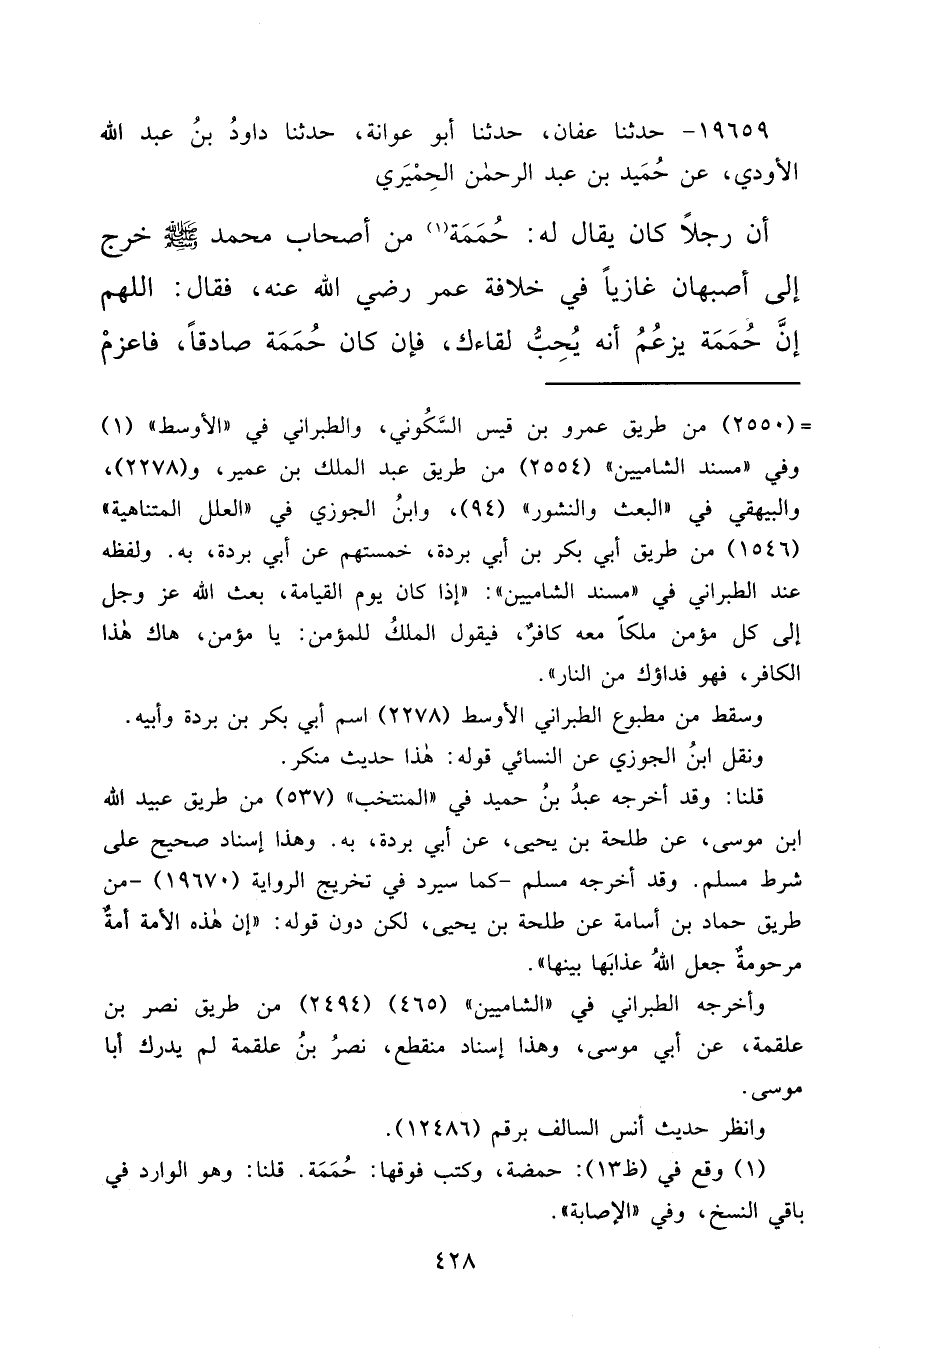 ١٩٦٥٩- حدثنا عفان، حدثنا أبو عوانة، حدثنا داودُ بنُ عبد الله
الأودي، عن حُمَيد بن عبد الرحمٰن الحِمْيَري
أن رجلاً كان يقال له: حُمَمَة(١) من أصحاب محمد ﷺ خرج
إلى أصبهان غازياً في خلافة عمر رضي الله عنه، فقال: اللهم
إنَّ حُمَمَة يزعُمُ أنه يُحِبُّ لقاءك، فإن كان حُمَمَة صادقاً، فاعزمْ
=(٢٥٥٠) من طريق عمرو بن قيس السَّكُوني، والطبراني في «الأوسط» (١)
وفي «مسند الشاميين» (٢٥٥٤) من طريق عبد الملك بن عمير، و(٢٢٧٨)،
والبيهقي في «البعث والنشور» (٩٤)، وابنُ الجوزي في «العلل المتناهية»
(١٥٤٦) من طريق أبي بكر بن أبي بردة، خمستهم عن أبي بردة، به. ولفظه
عند الطبراني في «مسند الشاميين»: «إذا كان يوم القيامة، بعث الله عز وجل
إلى كل مؤمن ملكاً معه كافرٌ، فيقول الملكُ للمؤمن: يا مؤمن، هاك هٰذا
الكافر، فهو فداؤك من النار».
وسقط من مطبوع الطبراني الأوسط (٢٢٧٨) اسم أبي بكر بن بردة وأبيه.
ونقل ابنُ الجوزي عن النسائي قوله: هٰذا حديث منكر.
قلنا: وقد أخرجه عبدُ بنُ حميد في «المنتخب» (٥٣٧) من طريق عبيد الله
ابن موسى، عن طلحة بن يحيى، عن أبي بردة، به. وهذا إسناد صحيح على
شرط مسلم. وقد أخرجه مسلم -كما سيرد في تخريج الرواية (١٩٦٧٠) -من
طريق حماد بن أسامة عن طلحة بن يحيى، لكن دون قوله: «إن هٰذه الأمة أمةٌ
مرحومةٌ جعل اللهُ عذابَها بينها».
وأخرجه الطبراني في «الشاميين» (٤٦٥) (٢٤٩٤) من طريق نصر بن
علقمة، عن أبي موسى، وهذا إسناد منقطع، نصرُ بنُ علقمة لم يدرك أبا
موسى.
وانظر حديث أنس السالف برقم (١٢٤٨٦).
(١) وقع في (ظ١٣): حمضة، وكتب فوقها: حُمَمَة. قلنا: وهو الوارد في
باقي النسخ، وفي «الإصابة».
٤٢٨